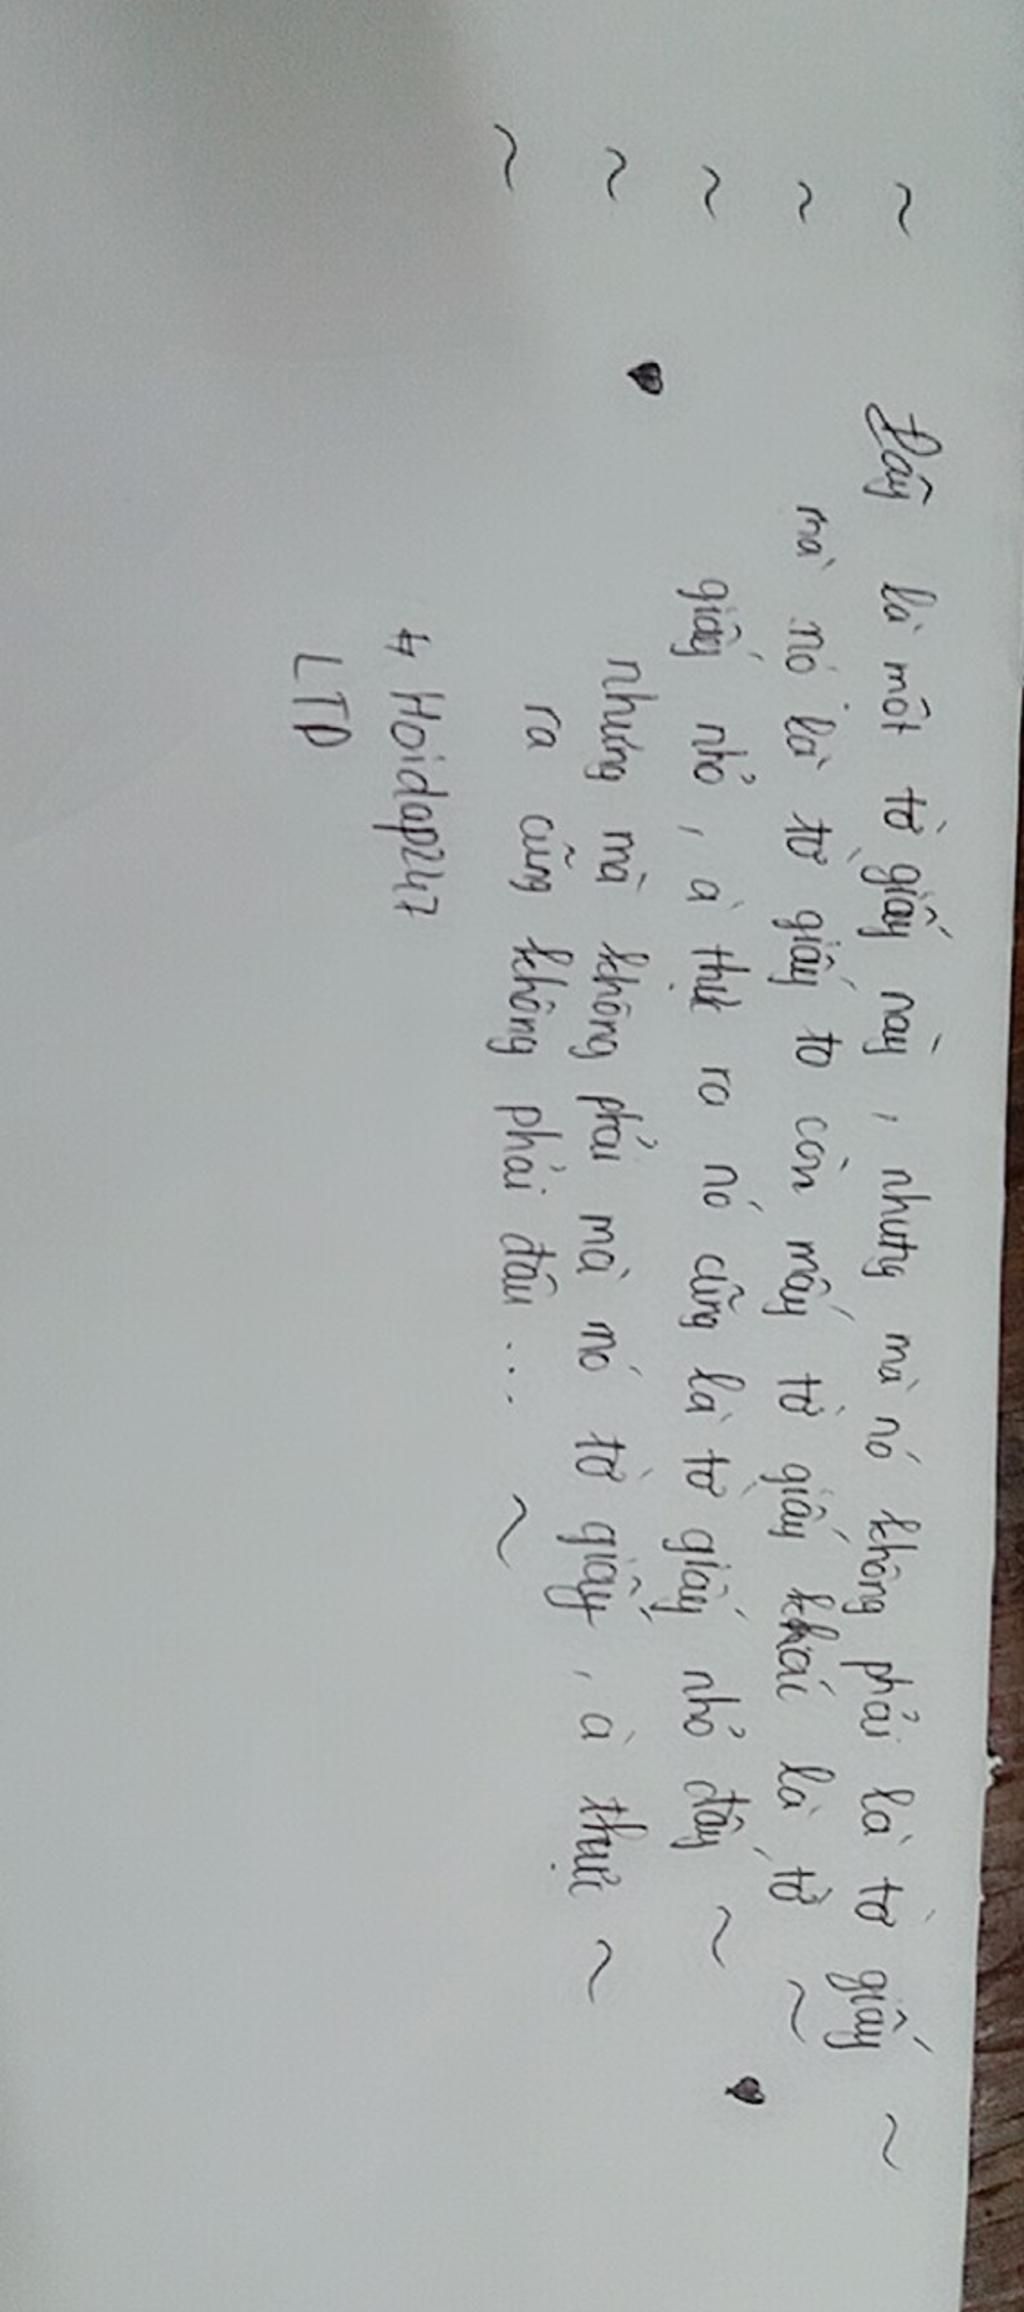 ~ Đây là một tờ giấy này, nhưng mà nó không phải là tờ giấy ~
~ mà nó là tờ giấy to còn mấy tờ giấy khác là tờ ~
~ giấy nhỏ, à thực ra nó cũng là tờ giấy nhỏ đấy ~ ♥
~ ♥ nhưng mà không phải mà nó tờ giấy, à thực ~
~ ra cũng không phải đâu... ~
# Hoidap247
LTD